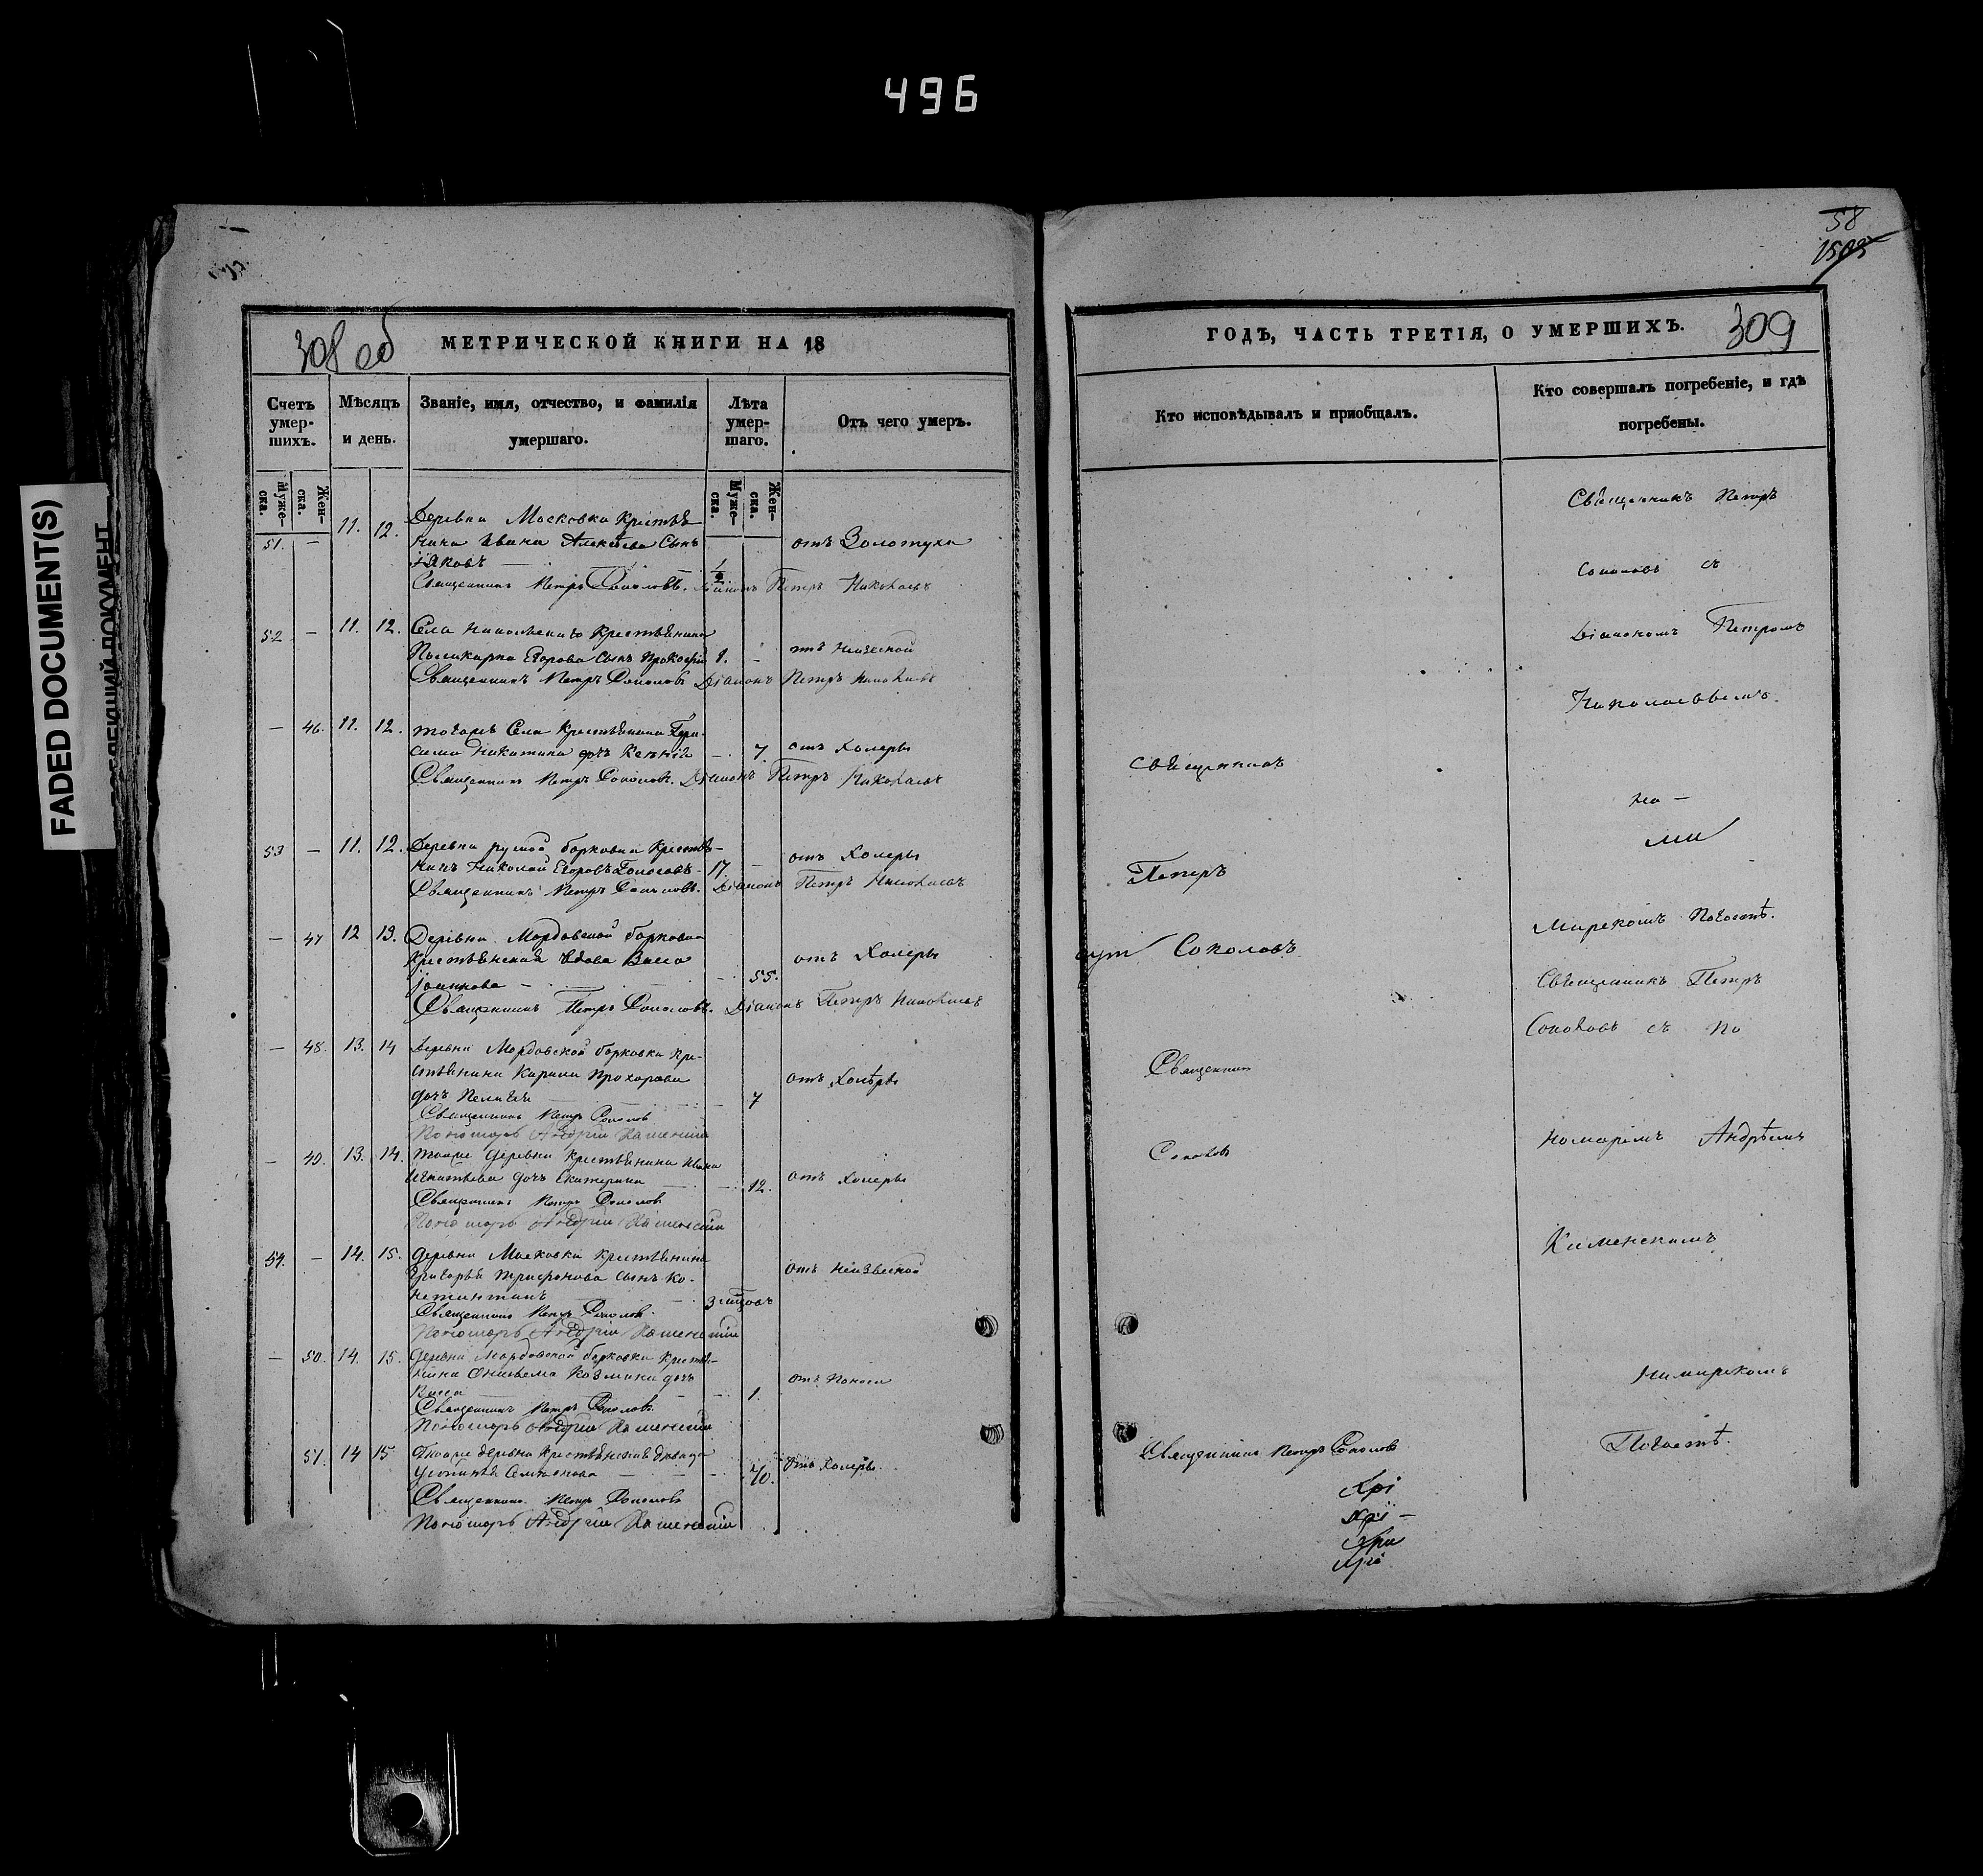 496
FADED DOCUMENT(S)
58
1503
308 об
МЕТРИЧЕСКОЙ КНИГИ НА 18
Счетъ умер-шихъ.
Мѣсяцъ и день.
Званіе, имя, отчество, и фамилія умершаго.
Лѣта умер-шаго.
Отъ чего умеръ.
Муже-ска.
Жен-ска.
Муже-ска.
Жен-ска.
51. — 11. 12. Деревни Московки Крестья
нина Ивана Алексѣева Сынъ отъ Золотухи
Іяковъ
Священникъ Петръ Соколовъ. Діаконъ Петръ Николаевъ
52 — 11. 12. Села Крестьянина
Поликарпа Егорова Сынъ Прокофій —
Священникъ Петръ Соколовъ Діаконъ Петръ Николаевъ
— 46. 11. 12. тогоже Села Крестьянина Гера-
сима Никитина дочь — 7 отъ Холеры
Священникъ Петръ Соколовъ. Діаконъ Петръ Николаевъ
53 — 11. 12. Деревни руской борковки Крестья-
нинъ Николай Егоровъ 17. — отъ Холеры
Священникъ Петръ Соколовъ. Діаконъ Петръ Николаевъ
— 47 12 13. Деревни Мордовской борковки
Крестьянская вдова Васса отъ Холеры
— 55.
Священникъ Петръ Соколовъ. Діаконъ Петръ Николаевъ
— 48. 13. 14 Деревни Мордовской борковки Кре-
стьянина Карпа Прохорова отъ Холѣры
дочь Пелагея — 7
Священникъ Петръ Соколов
Пономарь Андрей Каменскій
— 49. 13. 14. тояже деревни Крестьянина Ивана
Игнатьева дочь Екатерина — 12. отъ Холеры
Священникъ Петръ Соколов
Пономарь Андрей Каменскій
54. — 14. 15. деревни Московки Крестьянина
Григорья Трифонова сынъ Ко- отъ Неизвесной
нстинтинъ
Священникъ Петръ Соколов
Пономарь Андрей Каменскій
— 50. 14. 15. деревни Мордовской борковки Крестья-
нина Козмина дочь отъ Поноса
Васса — 1.
Священникъ Петръ Соколовъ
Пономарь Андрей Каменскій
51. 14 15 тояже деревни Крестьянская вдова
— 70. отъ Холеры
Священникъ Петръ Соколовъ
Пономарь Андрей Каменскій
ГОДЪ, ЧАСТЬ ТРЕТІЯ, О УМЕРШИХЪ.
309
Кто исповѣдывалъ и пріобщалъ.
Кто совершалъ погребеніе, и гдѣ погребены.
Священникъ
Петръ
Соколовъ
Священник
Соколовъ
Священникъ Петръ Соколовъ
Хрі
Хрі —
Священникъ Петръ
Соколовъ съ
Діакономъ Петромъ
Николаевымъ.
на —
Мирскомъ Погостѣ.
Священникъ Петръ
Соколовъ съ по
номаремъ Андрѣемъ
Каменскимъ
На мирскомъ
Погостѣ.